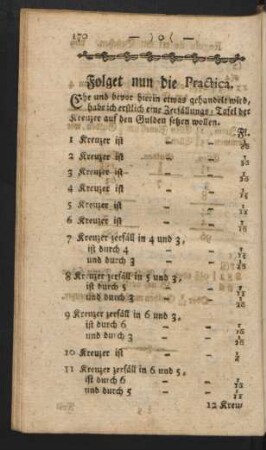 170 — )o( —
Folget nun die Practica.
Ehe und bevor hierin etwas gehandelt wird,
habe ich erstlich eine Zerfällungs-Tafel der
Kreuzer auf den Gulden setzen wollen.
Fl.
1 Kreuzer ist — —
2 Kreuzer ist — —
3 Kreuzer ist — —
4 Kreuzer ist — —
5 Kreuzer ist — —
6 Kreuzer ist — —
7 Kreuzer zerfäll in 4 und 3,
ist durch 4 — —
und durch 3 — —
8 Kreuzer zerfäll in 5 und 3,
ist durch 5 — —
und durch 3 — —
9 Kreuzer zerfäll in 6 und 3,
ist durch 6 — —
und durch 3 — —
10 Kreuzer ist — —
11 Kreuzer zerfäll in 6 und 5,
ist durch 6 — —
und durch 5 — —
12 Kreu-